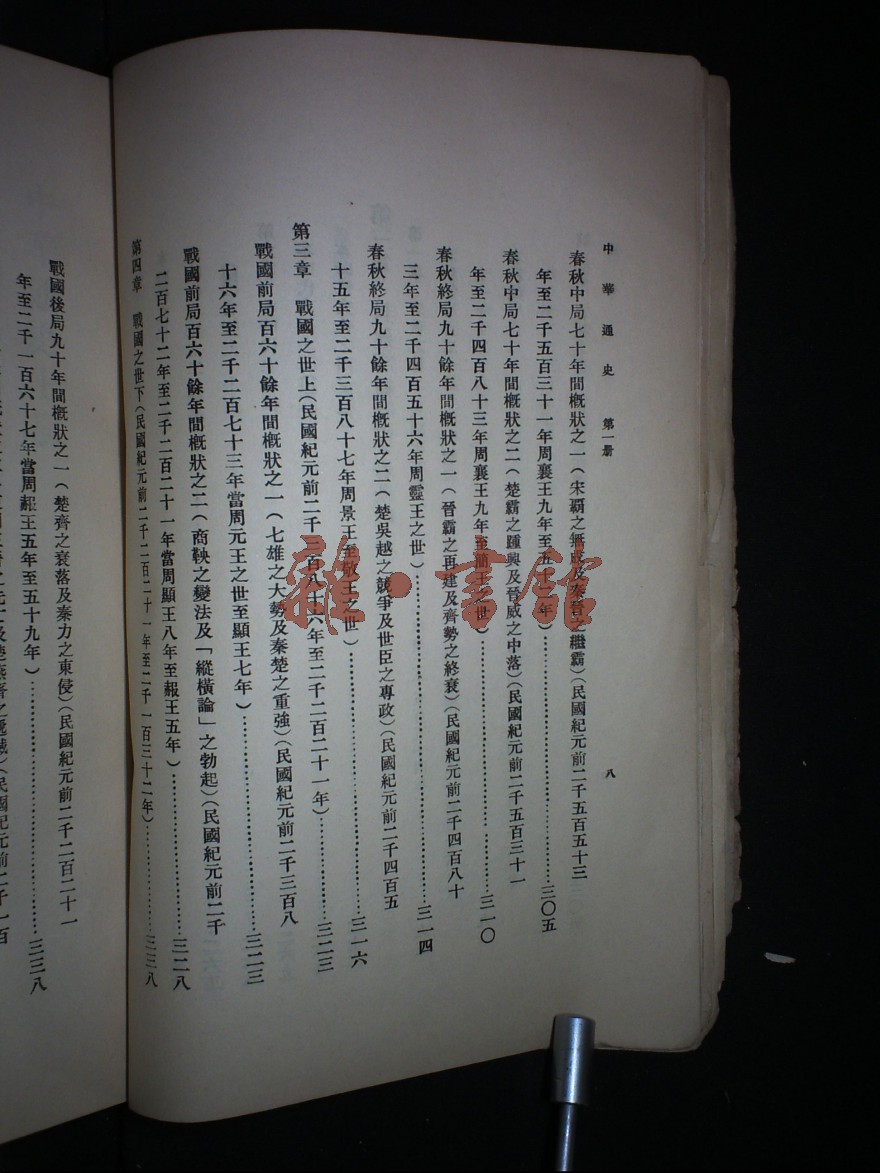 中華通史 第一册 八
春秋中局七十年間概狀之一(宋霸之無成及秦晉之繼霸)(民國紀元前二千五百五十三
年至二千五百三十一年周襄王九年至五十二年)⋯⋯三〇五
春秋中局七十年間概狀之二(楚霸之踵興及晉威之中落)(民國紀元前二千五百三十一
年至二千四百八十三年周襄王九年至簡王之世)⋯⋯三一〇
春秋終局九十餘年間概狀之一(晉霸之再建及齊勢之終衰)(民國紀元前二千四百八十
三年至二千四百五十六年周靈王之世)⋯⋯三一四
春秋終局九十餘年間概狀之二(楚吳越之競爭及世臣之專政)(民國紀元前二千四百五
十五年至二千三百八十七年周景王至敬王之世)⋯⋯三一六
第三章 戰國之世上(民國紀元前二千三百八十六年至二千二百二十一年)⋯⋯三二三
戰國前局百六十餘年間概狀之一(七雄之大勢及秦楚之重強)(民國紀元前二千三百八
十六年至二千二百七十三年當周元王之世至顯王七年)⋯⋯三二三
戰國前局百六十餘年間概狀之二(商鞅之變法及「縱橫論」之勃起)(民國紀元前二千
二百七十二年至二千二百二十一年當周顯王八年至赧王五年)⋯⋯三二八
第四章 戰國之世下(民國紀元前二千二百二十一年至二千一百三十二年)⋯⋯三三八
戰國後局九十年間概狀之一(楚齊之衰落及秦力之東侵)(民國紀元前二千二百二十一
年至二千一百六十七年當周赧王五年至五十九年)⋯⋯三三八
雜·書館